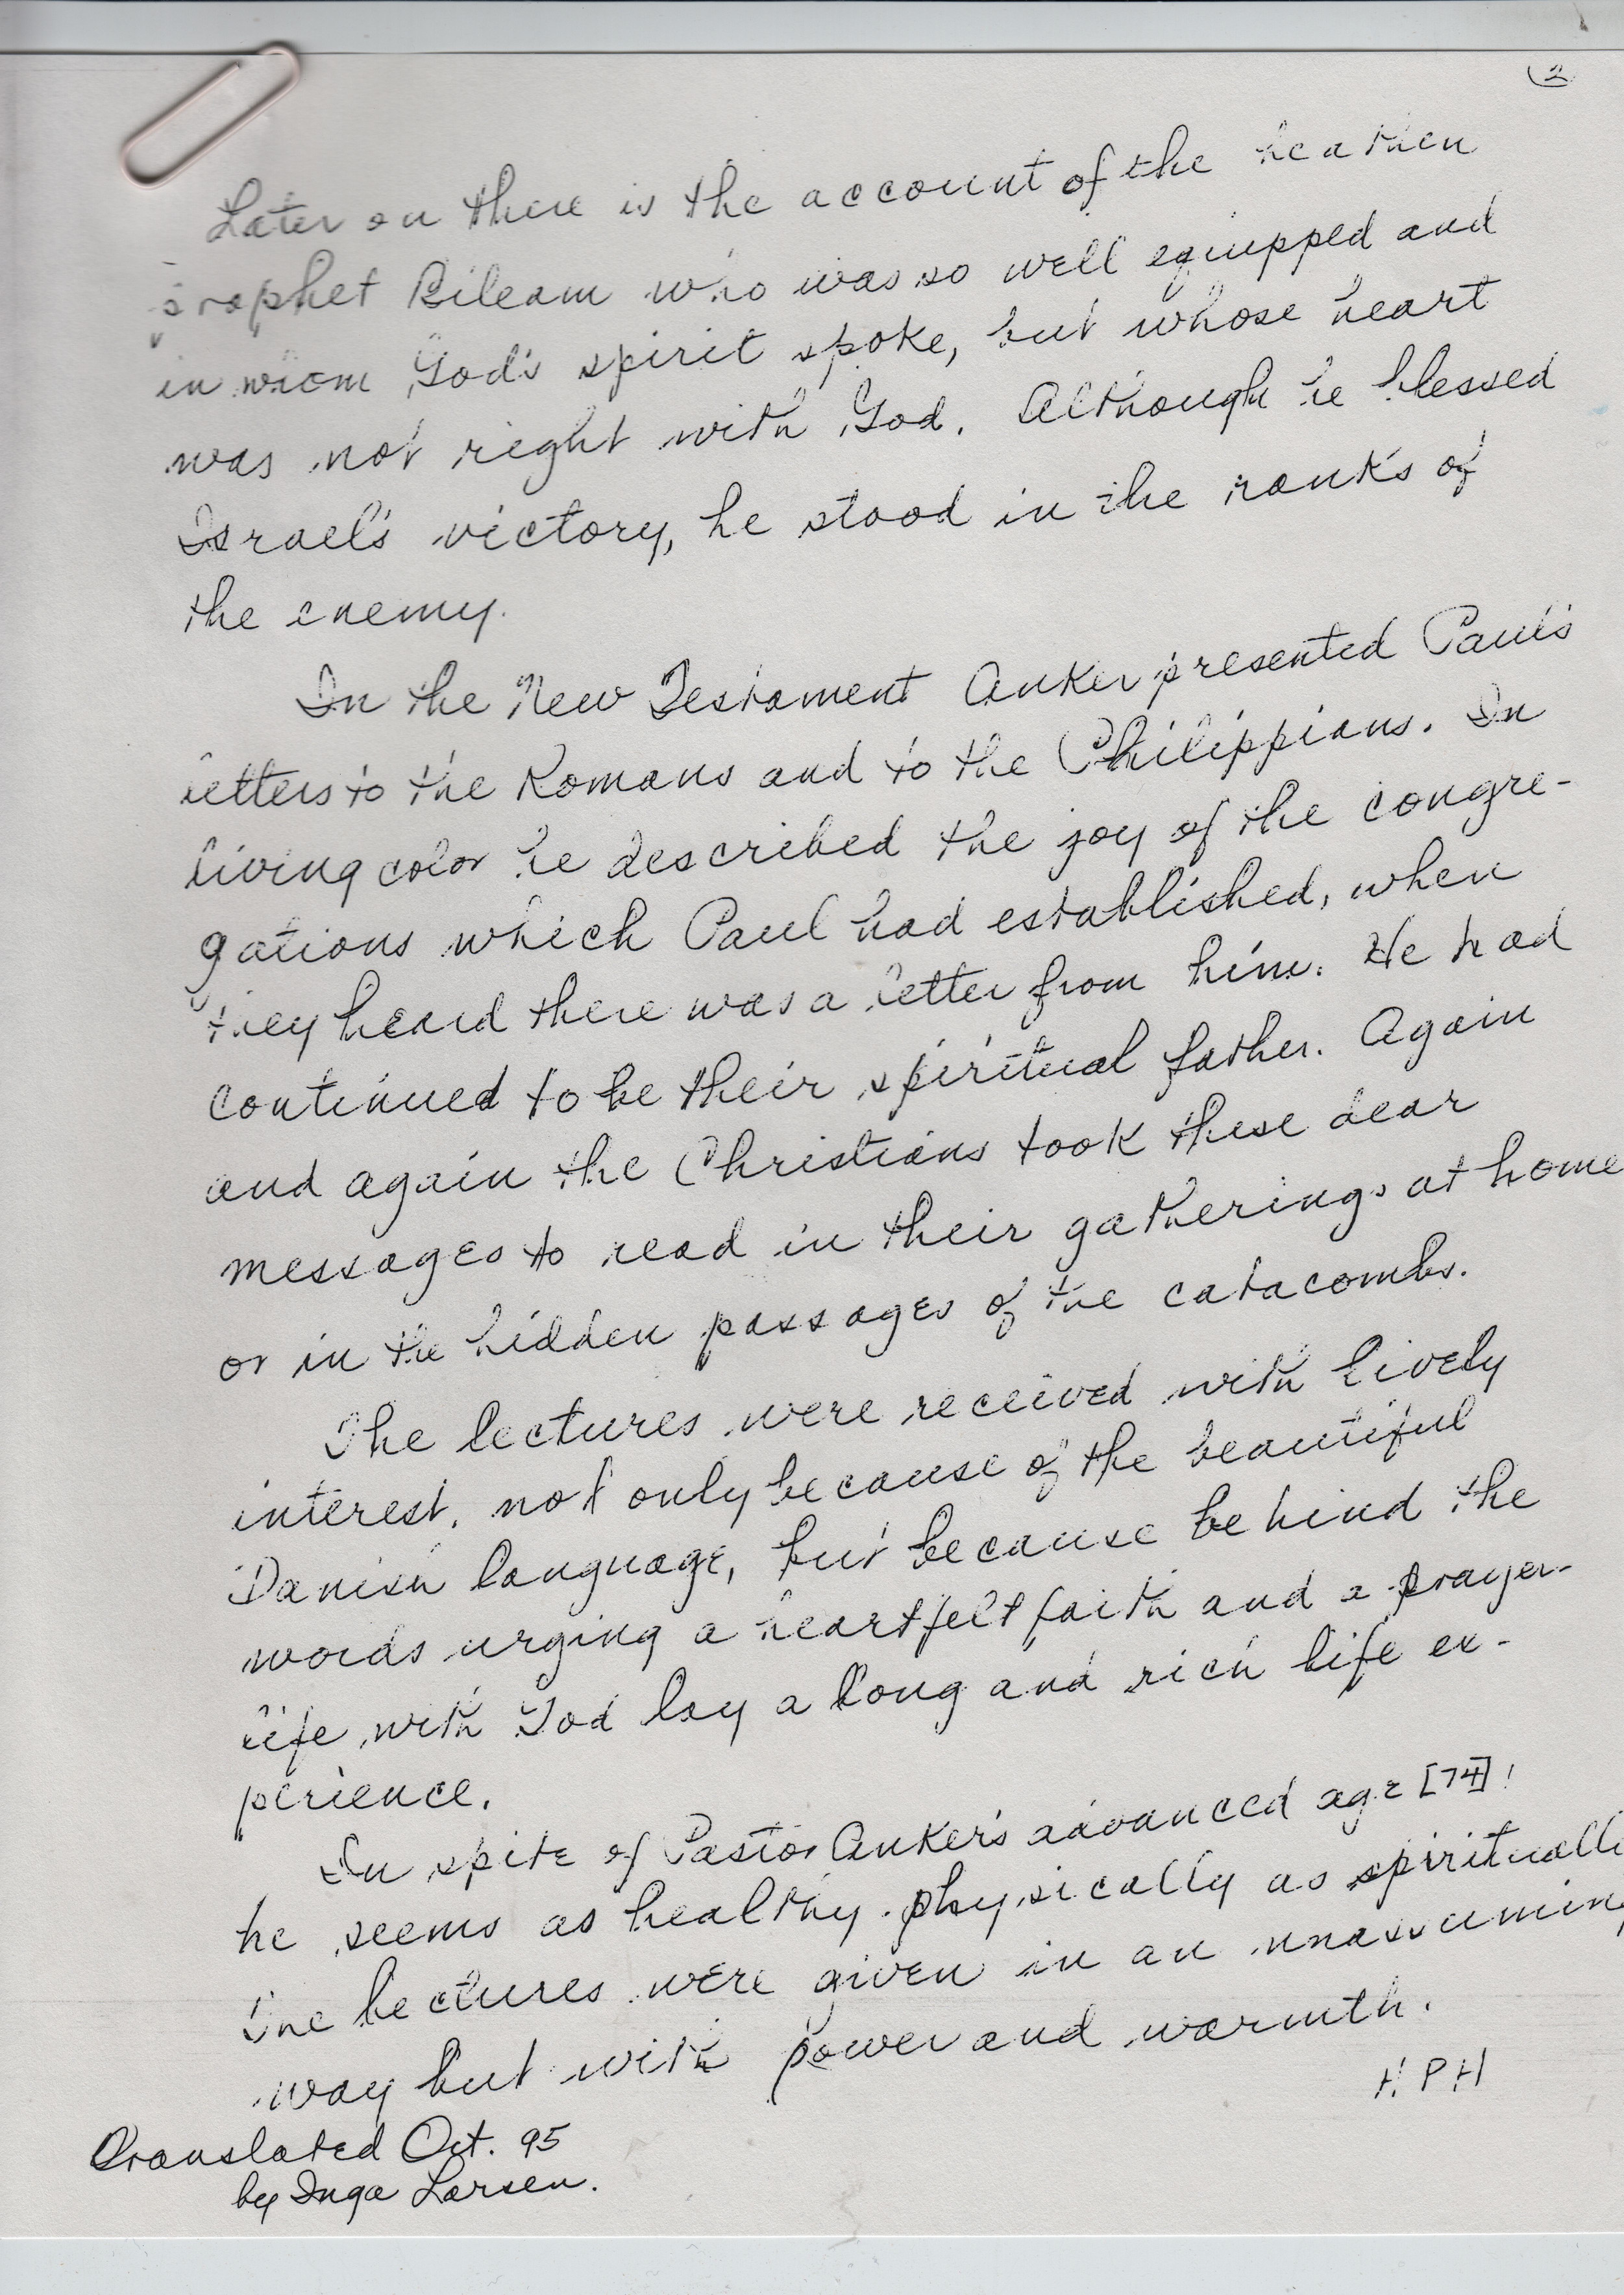 2
Later on there is the account of the heathen
prophet Bileam who was so well equipped and
in whom God's spirit spoke, but whose heart
was not right with God. Although he blessed
Israel's victory, he stood in the ranks of
the enemy.
In the New Testament Anker presented Paul's
letters to the Romans and to the Philippians. In
living color he described the joy of the congre-
gations which Paul had established, when
they heard there was a letter from him. He had
continued to be their spiritual father. Again
and again the Christians took these dear
messages to read in their gatherings at home
or in the hidden passages of the catacombs.
The lectures were received with lively
interest, not only because of the beautiful
Danish language, but because behind the
words urging a heartfelt faith and a prayer-
life with God lay a long and rich life ex-
perience.
In spite of Pastor Anker's advanced age [74]!
he seems as healthy physically as spiritually
The lectures were given in an unassuming
way but with power and warmth.
H P H
Translated Oct. 95
by Inga Larsen.